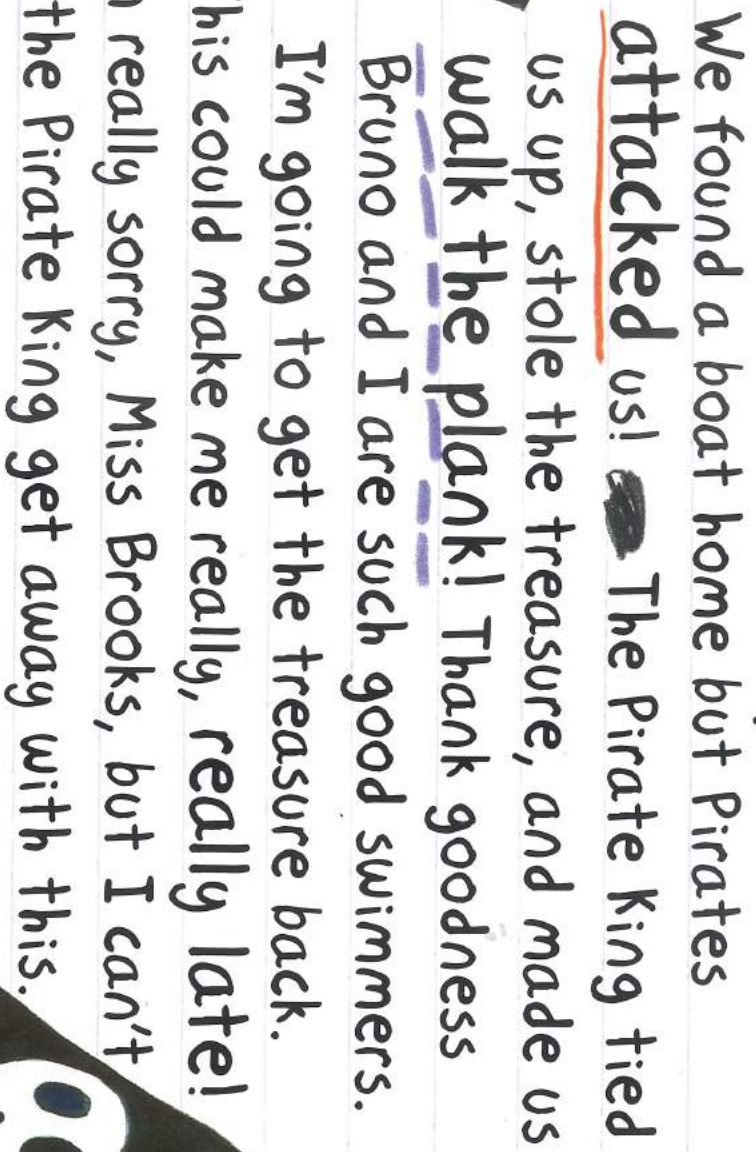 We found a boat home but Pirates
attacked us! The Pirate King tied
us up, stole the treasure, and made us
walk the plank! Thank goodness
Bruno and I are such good swimmers.
I'm going to get the treasure back.
his could make me really, really late!
really sorry, Miss Brooks, but I can't
the Pirate King get away with this.